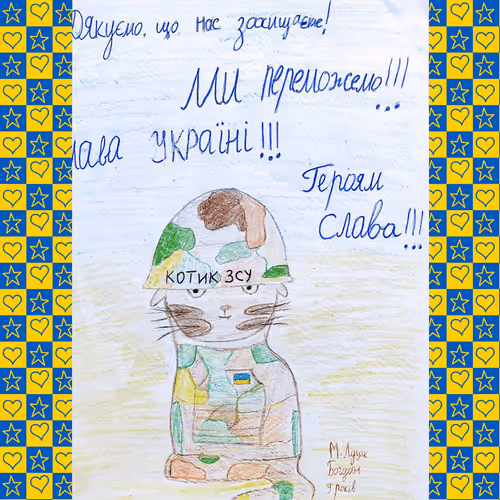 Дякуємо, що нас захищаєте!
Ми переможемо!!!
лава Україні!!!
Героям
слава!!!
КОТИК ЗСУ
М. Луцк
Богдан
9 років